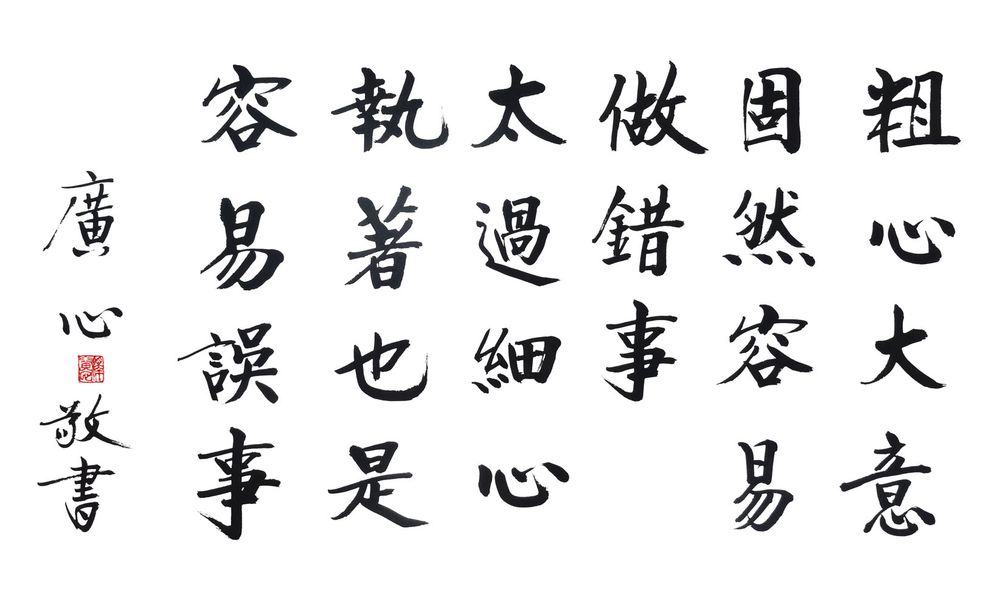 粗心大意
固然容易
做錯事
太過細心
執著也是
容易誤事
廣心敬書